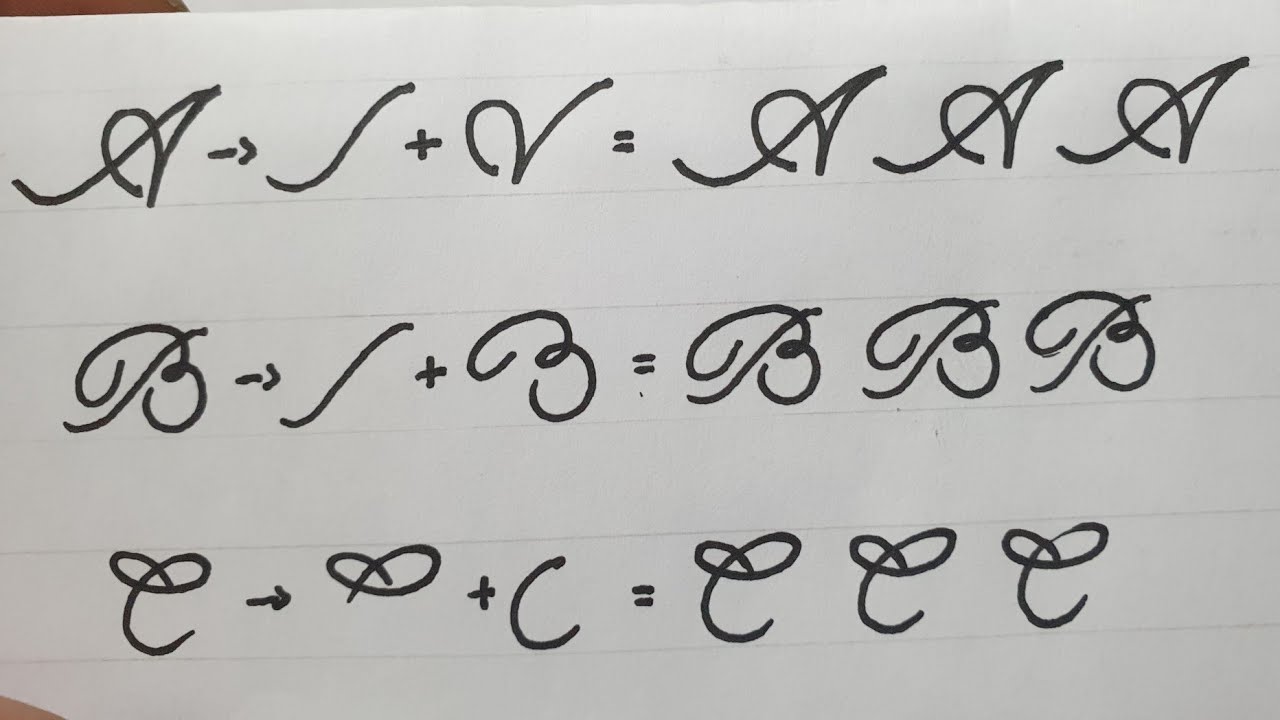 A → ʃ + V = A A A
B → ʃ + B = B B B
C → + C = C C C